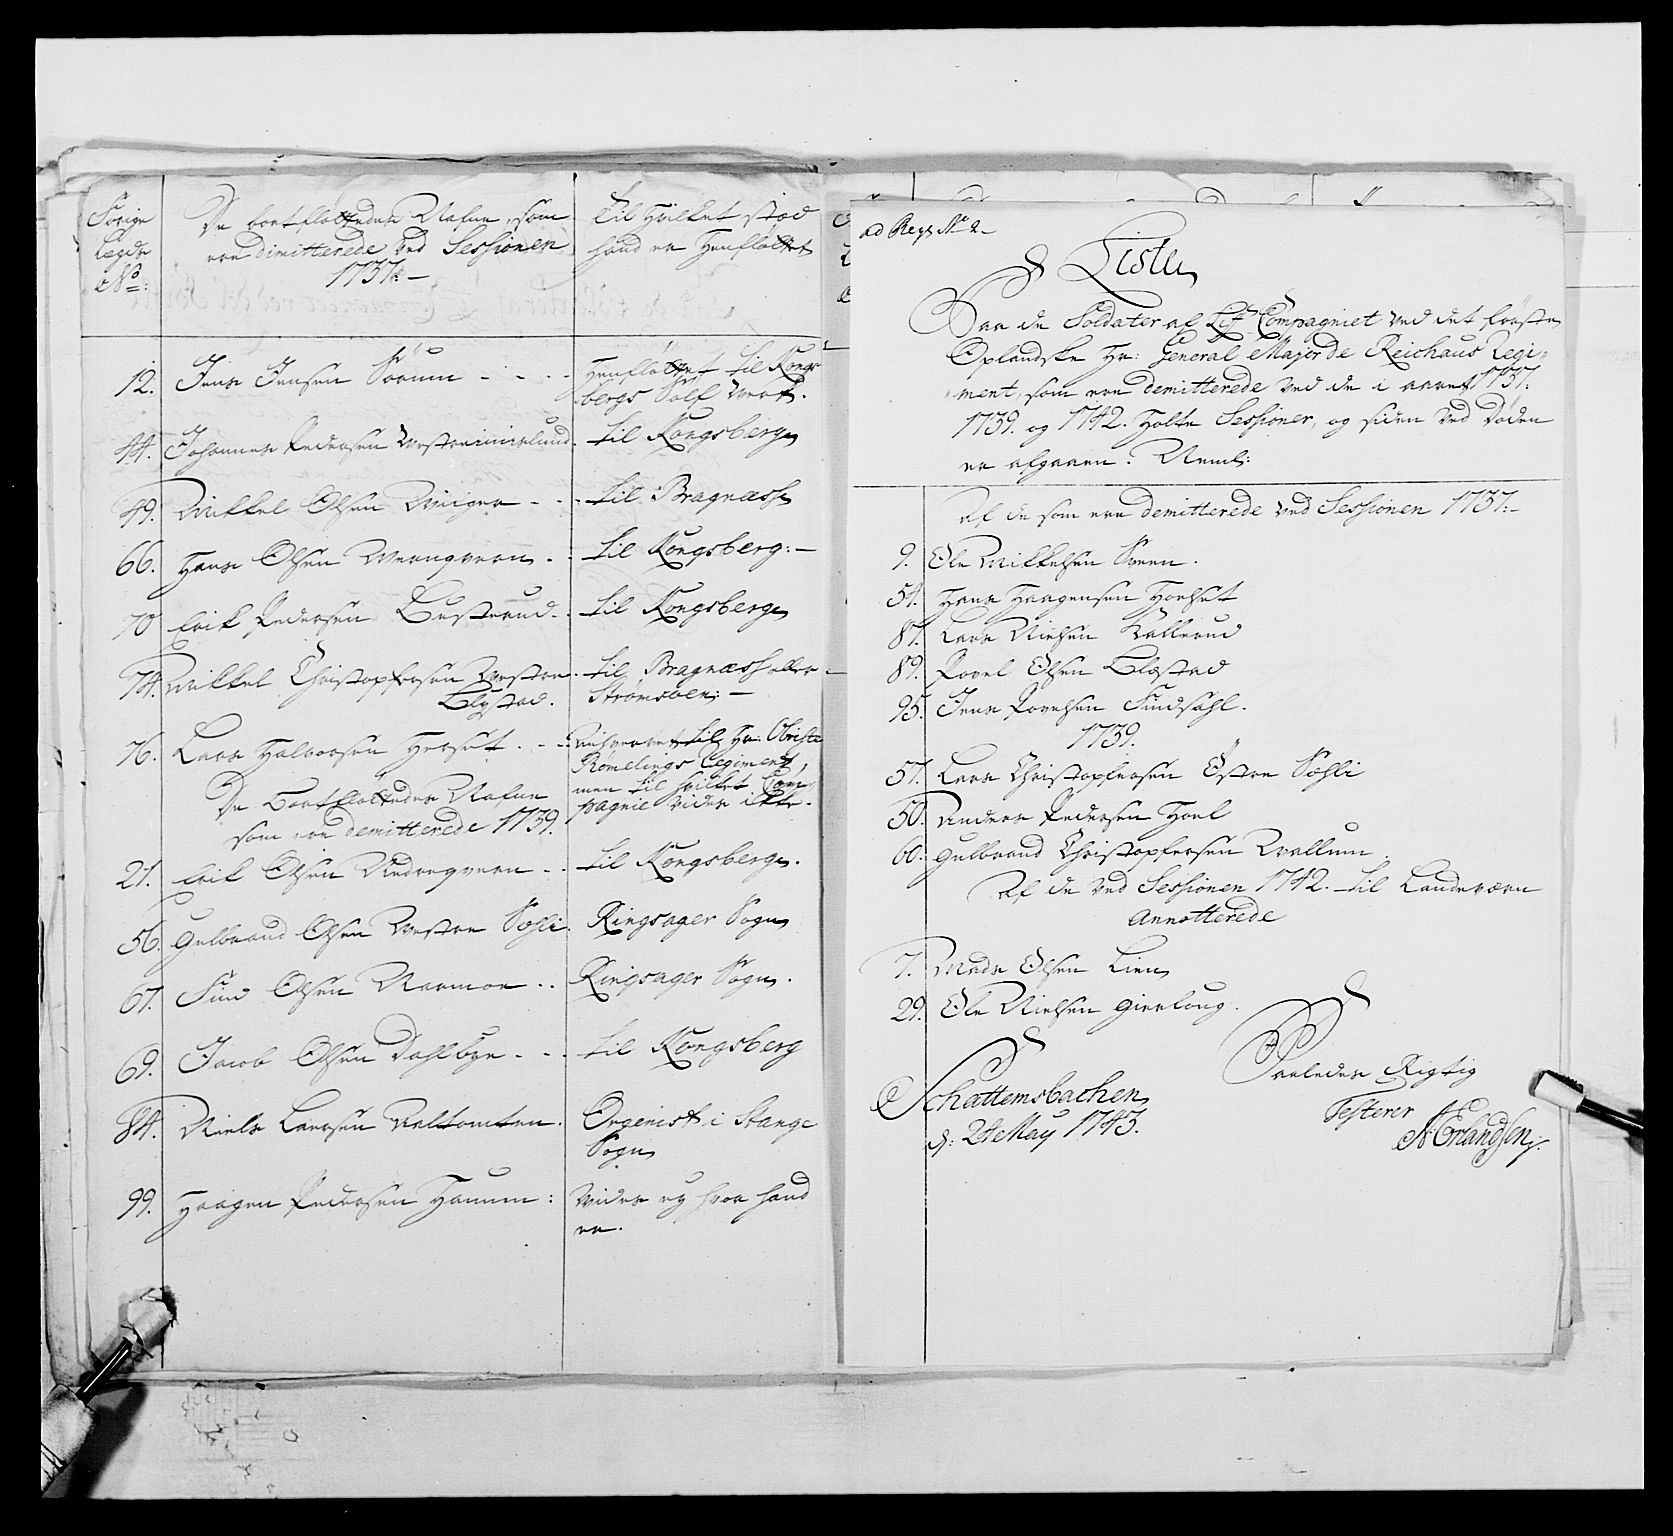 Forige
Lægds
No:
De bortfløttedes Nafne, som
ere dimitterede ved Sessionen
1737.—
Til Hvilket stæd
hand er Henfløttet
12. Jens Jensen Sörum - - - Henfløttet til Kongs
bergs Sölf Werk.
44. Johannes Pedersen til Kongsberg
49. Mikkel Olsen - - - til Bragnæss
66. Hans Olsen - - til Kongsberg:—
70 Erik Pedersen Busterud - - til Kongsberg
74. Mikkel Christophersen Westre til Bragnæss eller
Blystad. Strömsöen:—
76. Lars Halvorsen Herset - - - til Hr: Obriste
Römelings Regiment,
men til hvilket Com-
pagnie vides ikke.
De Bortfløttedes Nafne
som ere demitterede 1739.
21. Erik Olsen - - til Kongsberg.
56. Gulbrand Olsen Westre Sæhli. Ringsager Sogn
67. Find Olsen - - Ringsager Sogn.
69. Jacob Olsen Dahlbye - - - til Kongsberg
84. Niels Larsen Organist i Stange
Sogn
99. Haagen Pedersen : Vides ey hvor hand
er.
ad Regs No 2-
Liste
Paa de Soldater af Lif Compagniet ved det förste
Oplandske Hr: General Major de Reichaus Regi-
ment, som ere demitterede ved de i aaret 1737:
1739. og 1742. Holte Sessioner, og siden ved Döden
er afgaaen. Neml:
Af de som ere demitterede ved Sessionen 1737:-
9. Ole Mikkelsen Sveen.
54. Hans Haagensen Hoelset
87. Lars Nielsen Kallerud
89. Povel Olsen Blæstad
95. Jens Povelsen Findsahl.
1739.
57. Lars Christophersen Östre Sæhli
50. Anders Pedersen Hoel
60. Gulbrand Christophersen Wallum
Af de ved Sessionen 1742. til Landeværn
Annotterede
7. Mads Olsen Lien
29. Ole Nielsen Gierloug.
Schattemsbachen
d: 24 May 1743.
Saaledes Rigtig
Testerer
N Erlandsen: